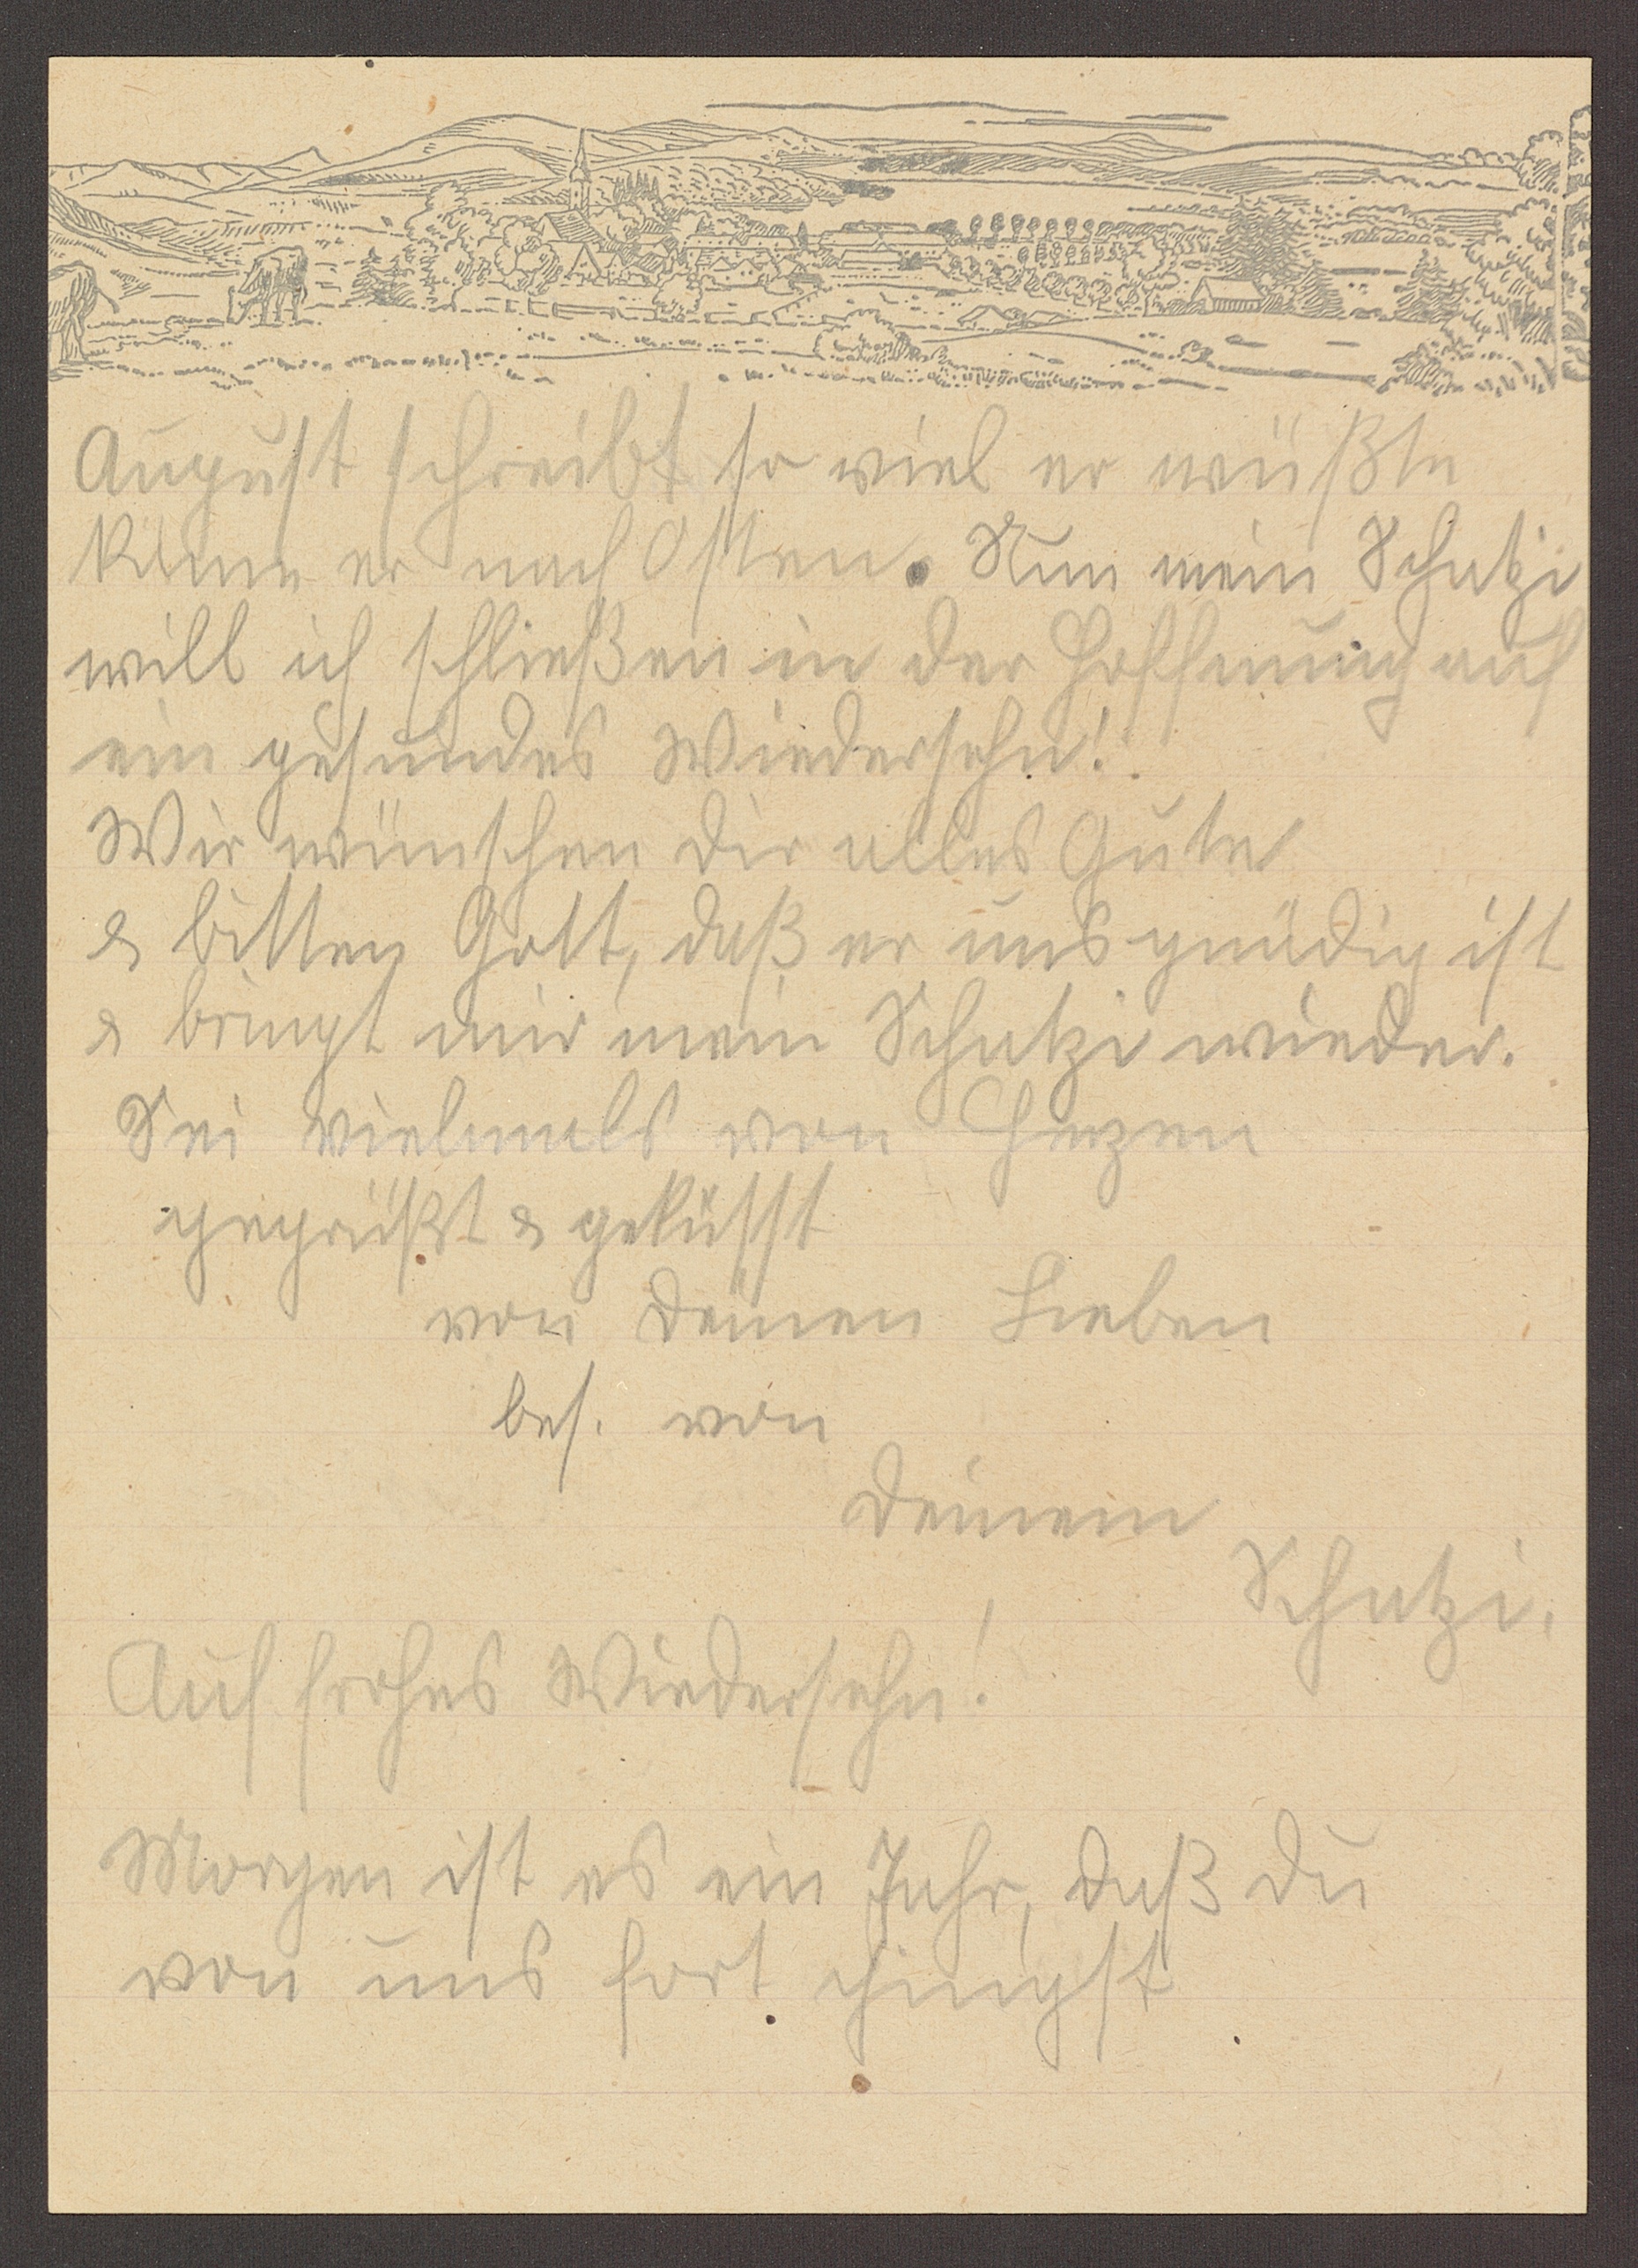 August schreibt so viel er wüßte
käme er nach Osten. Nun mein Schatzi
will ich schließen in der Hoffnung auf
ein gesundes Wiedersehn!
Wir wünschen dir alles Gute
& bitten Gott, daß er uns gnädig ist
& bringt mir mein Schatzi wieder.
Sei vielmals von Herzen
gegrüßt & geküsst
von deinen Lieben
bes. von
deinem
Schatzi.
Auf frohes Wiedersehn!
Morgen ist es ein Jahr, daß du
von uns fort gingst